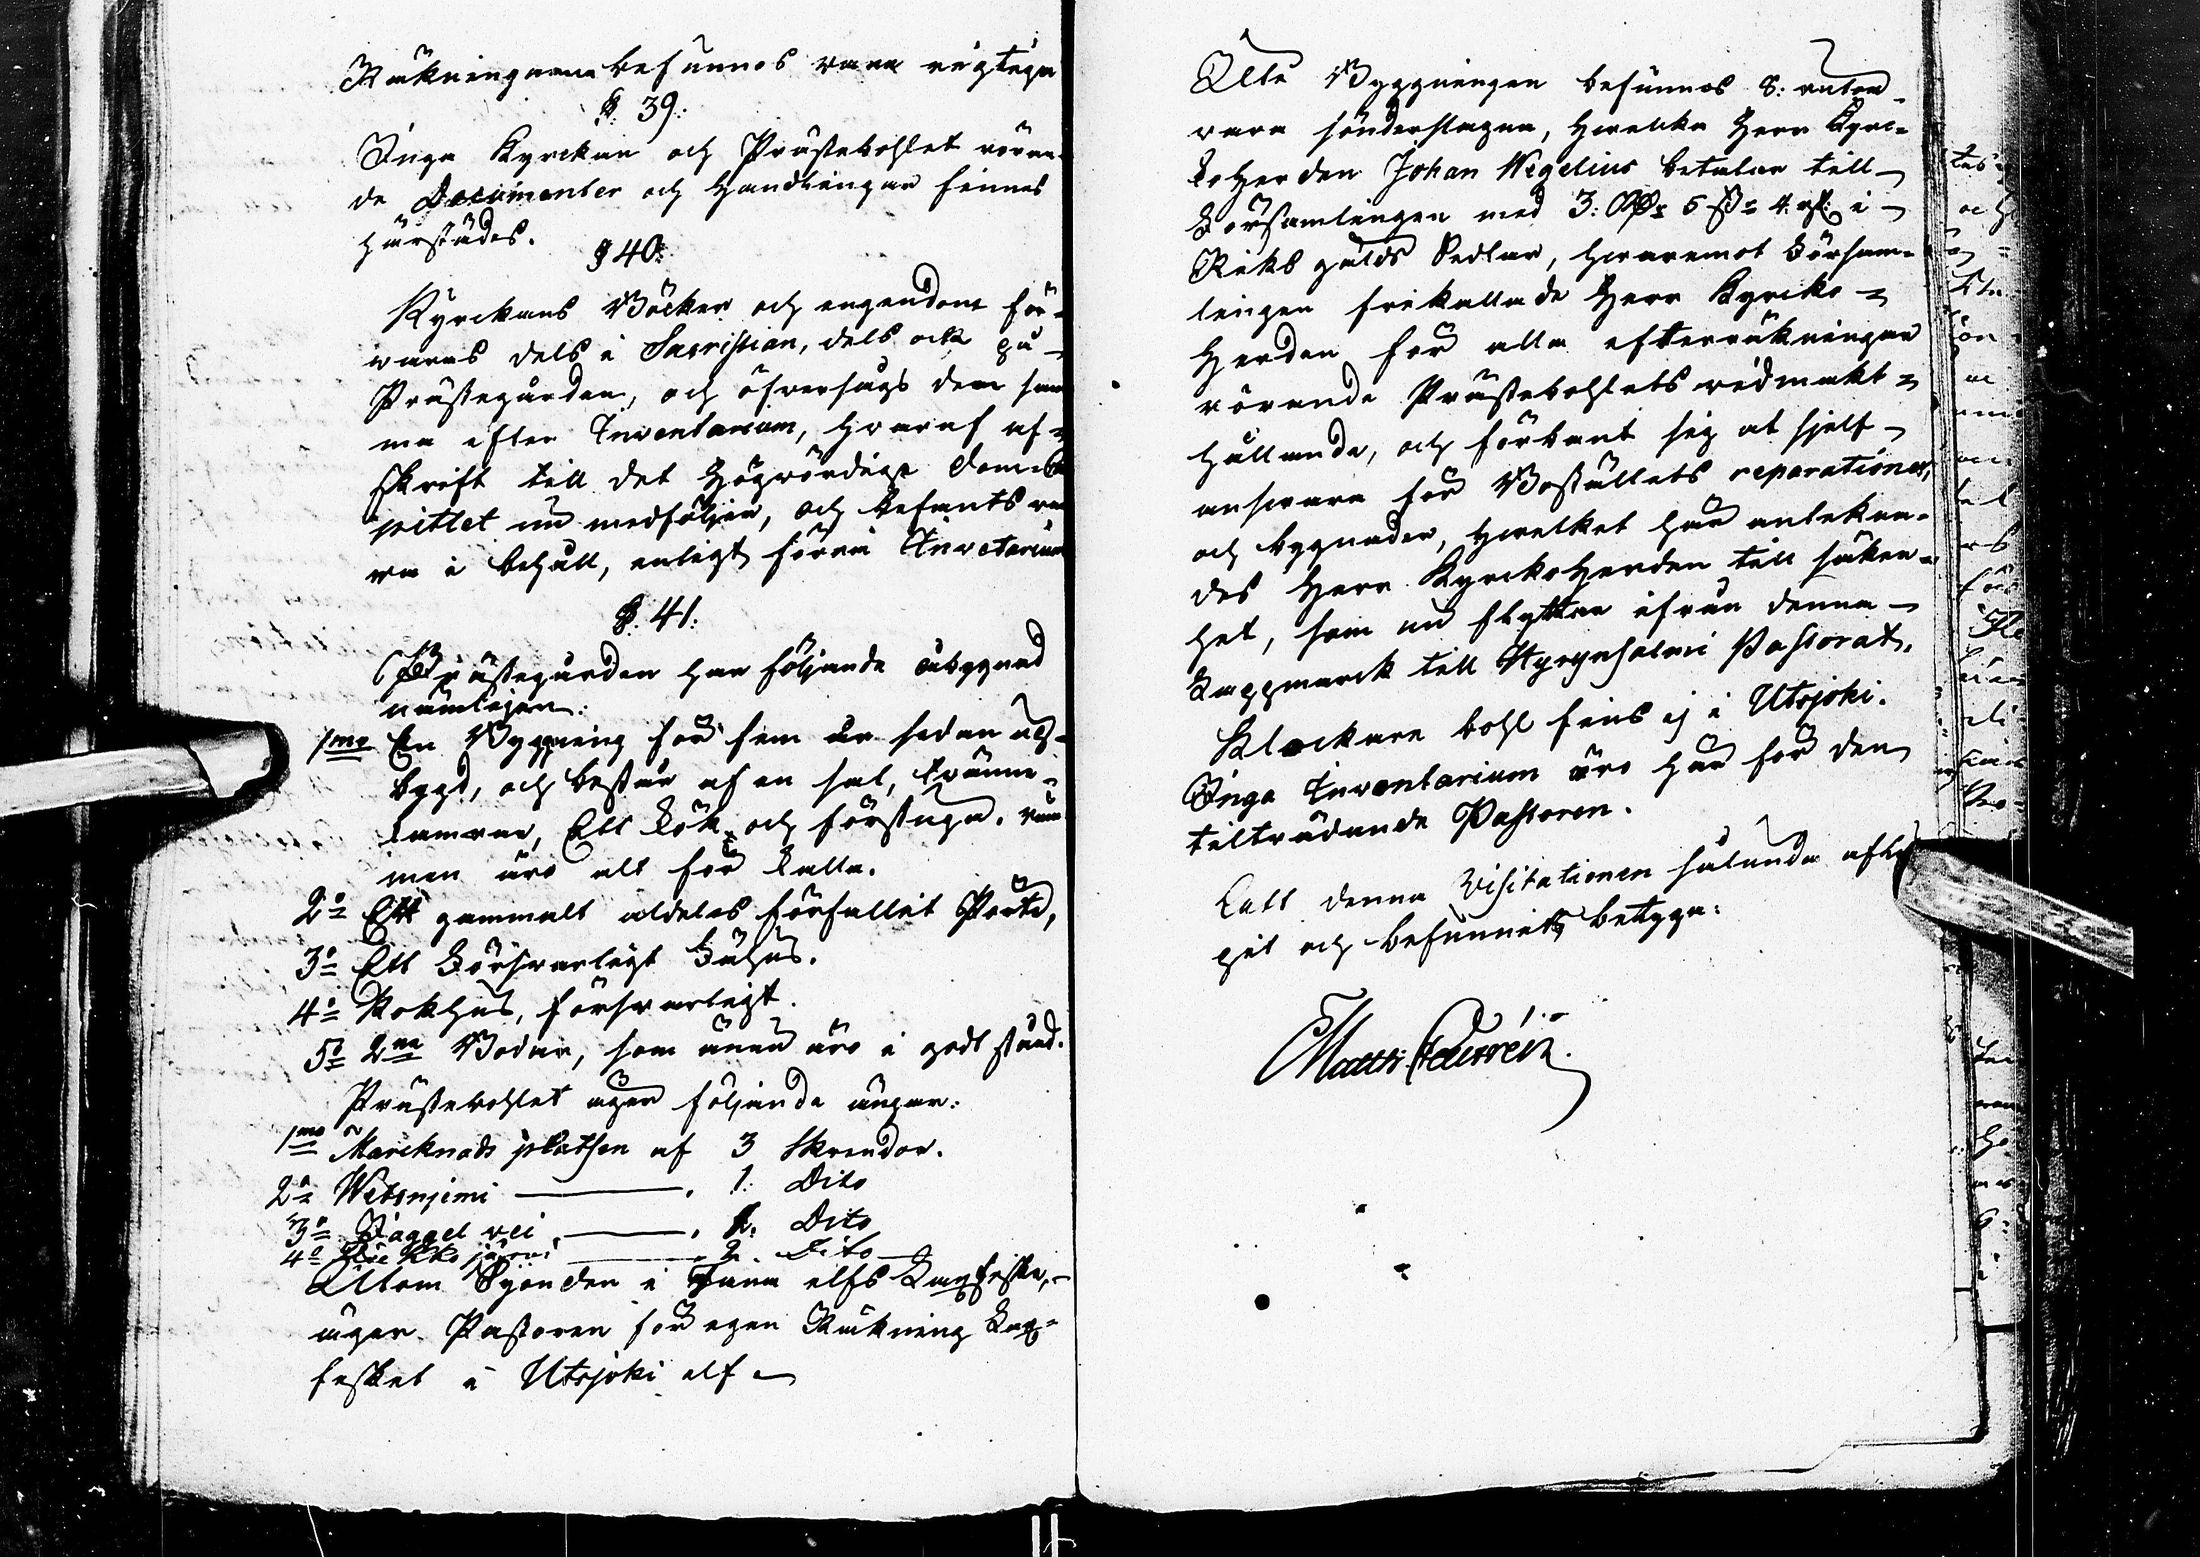 Räkningarne befunnos vara rigtiga
§. 39:
Inga Kyrckan och Prästebohlet röran-
de Documenter och Handlingar finnes
härstädes.
§ 40:
Kyrckans Böcker och engendom för-
waras dels i Sacristian, dels ock på
Prästegården, och öfversågs den sam
ma efter Inventarium, hvaraf af-
skrift till det Högvördige Dom-Ca
pitlet nu medföljer, och befants va
ra i behåll, enligt förra Invetarium
§. 41:
Prästegården har följande åbyggnad
nämligen:
1mo En Byggning för fem år sedan up-
bygd, och består af en sal, tvänne
kamrar, Ett Kök och förstuga. rum
men äro alt för kalla.
2o Ett gammalt aldeles förfallit Pörte,
3o Ett Försvarligt Fähus.
4o Kokhus, försvarligt.
5o 2ne Bodar, som ännu äro i godt stånd.
Prästebohlet äger följande ängar:
1mo Marcknads platsen af 3 Skrindor.
2o Wetsnjemi . 1. Dito
3o Jaggel vei . 1. Dito
4o jarvi 2. Dito
Utom Tjonden i Tana elfs Laxfiske,
äger Pastoren för egen Räkning Lax-
fisket i Utsjoki elf
Uti Byggningen befunnos 8: rutor
vara sönderslagna, hwilka Herr Kyrc-
koherden Johan Wegelius betalar till
Församlingen med 3: Rdr 5 s: 4 rst. i
Riks gälds Sedlar, hvaremot Försam-
lingen frikallade Herr Kyrcko-
Herden för alla efterräkningar
rörande Prästebohlets vidmakt-
hållande, och förbant sig at sjelf
answara för Boställets reparationer,
och bygnader, hwilket här antekna-
des Herr Kyrckoherden till säker-
het, som nu flyttar ifrån denna
Lappmarck till Hyrynsalmi Pastorat.
Klockare bohl fins ej i Utsjoki.
Inga Inventarium äro här för den
tilträdande Pastoren.
Eatt denna Visitationen sålunda aflu
pit och befunnits betyga:
Matth: